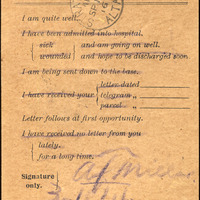 I am quite well.
I have been admitted into hospital.
sick and am going on well.
wounded and hope to be discharged soon.
I am being sent down to the base.
letter dated
I have received your telegram „
parcel „
Letter follows at first opportunity.
I have received no letter from you
lately.
for a long time.
Signature
only.